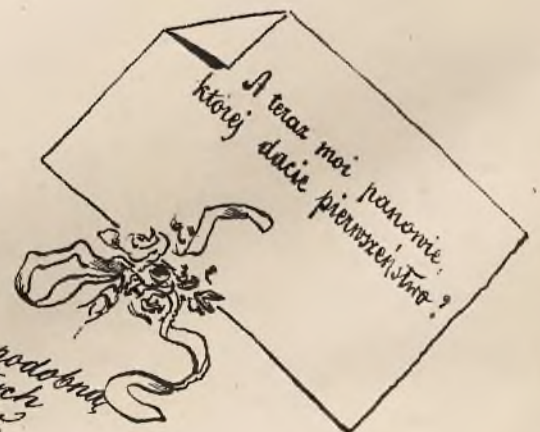 A teraz moi panowie,
której dacie pierwszeństwo?
podobną